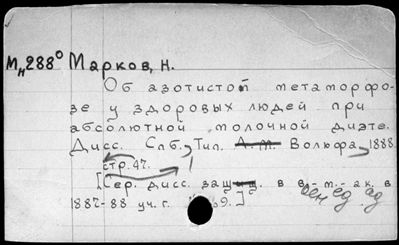 Мн288° Марков, Н.
Об азотистой метаморфо-
зе у здоровых людей при
абсолютной молочной диэте.
Дисс. Спб., Тип. А. М. Вольфа, 1888.
стр. 47.
[Сер. дисс. защищ. в в.-м.-ак. в
1887-88 уч. г. №9.]